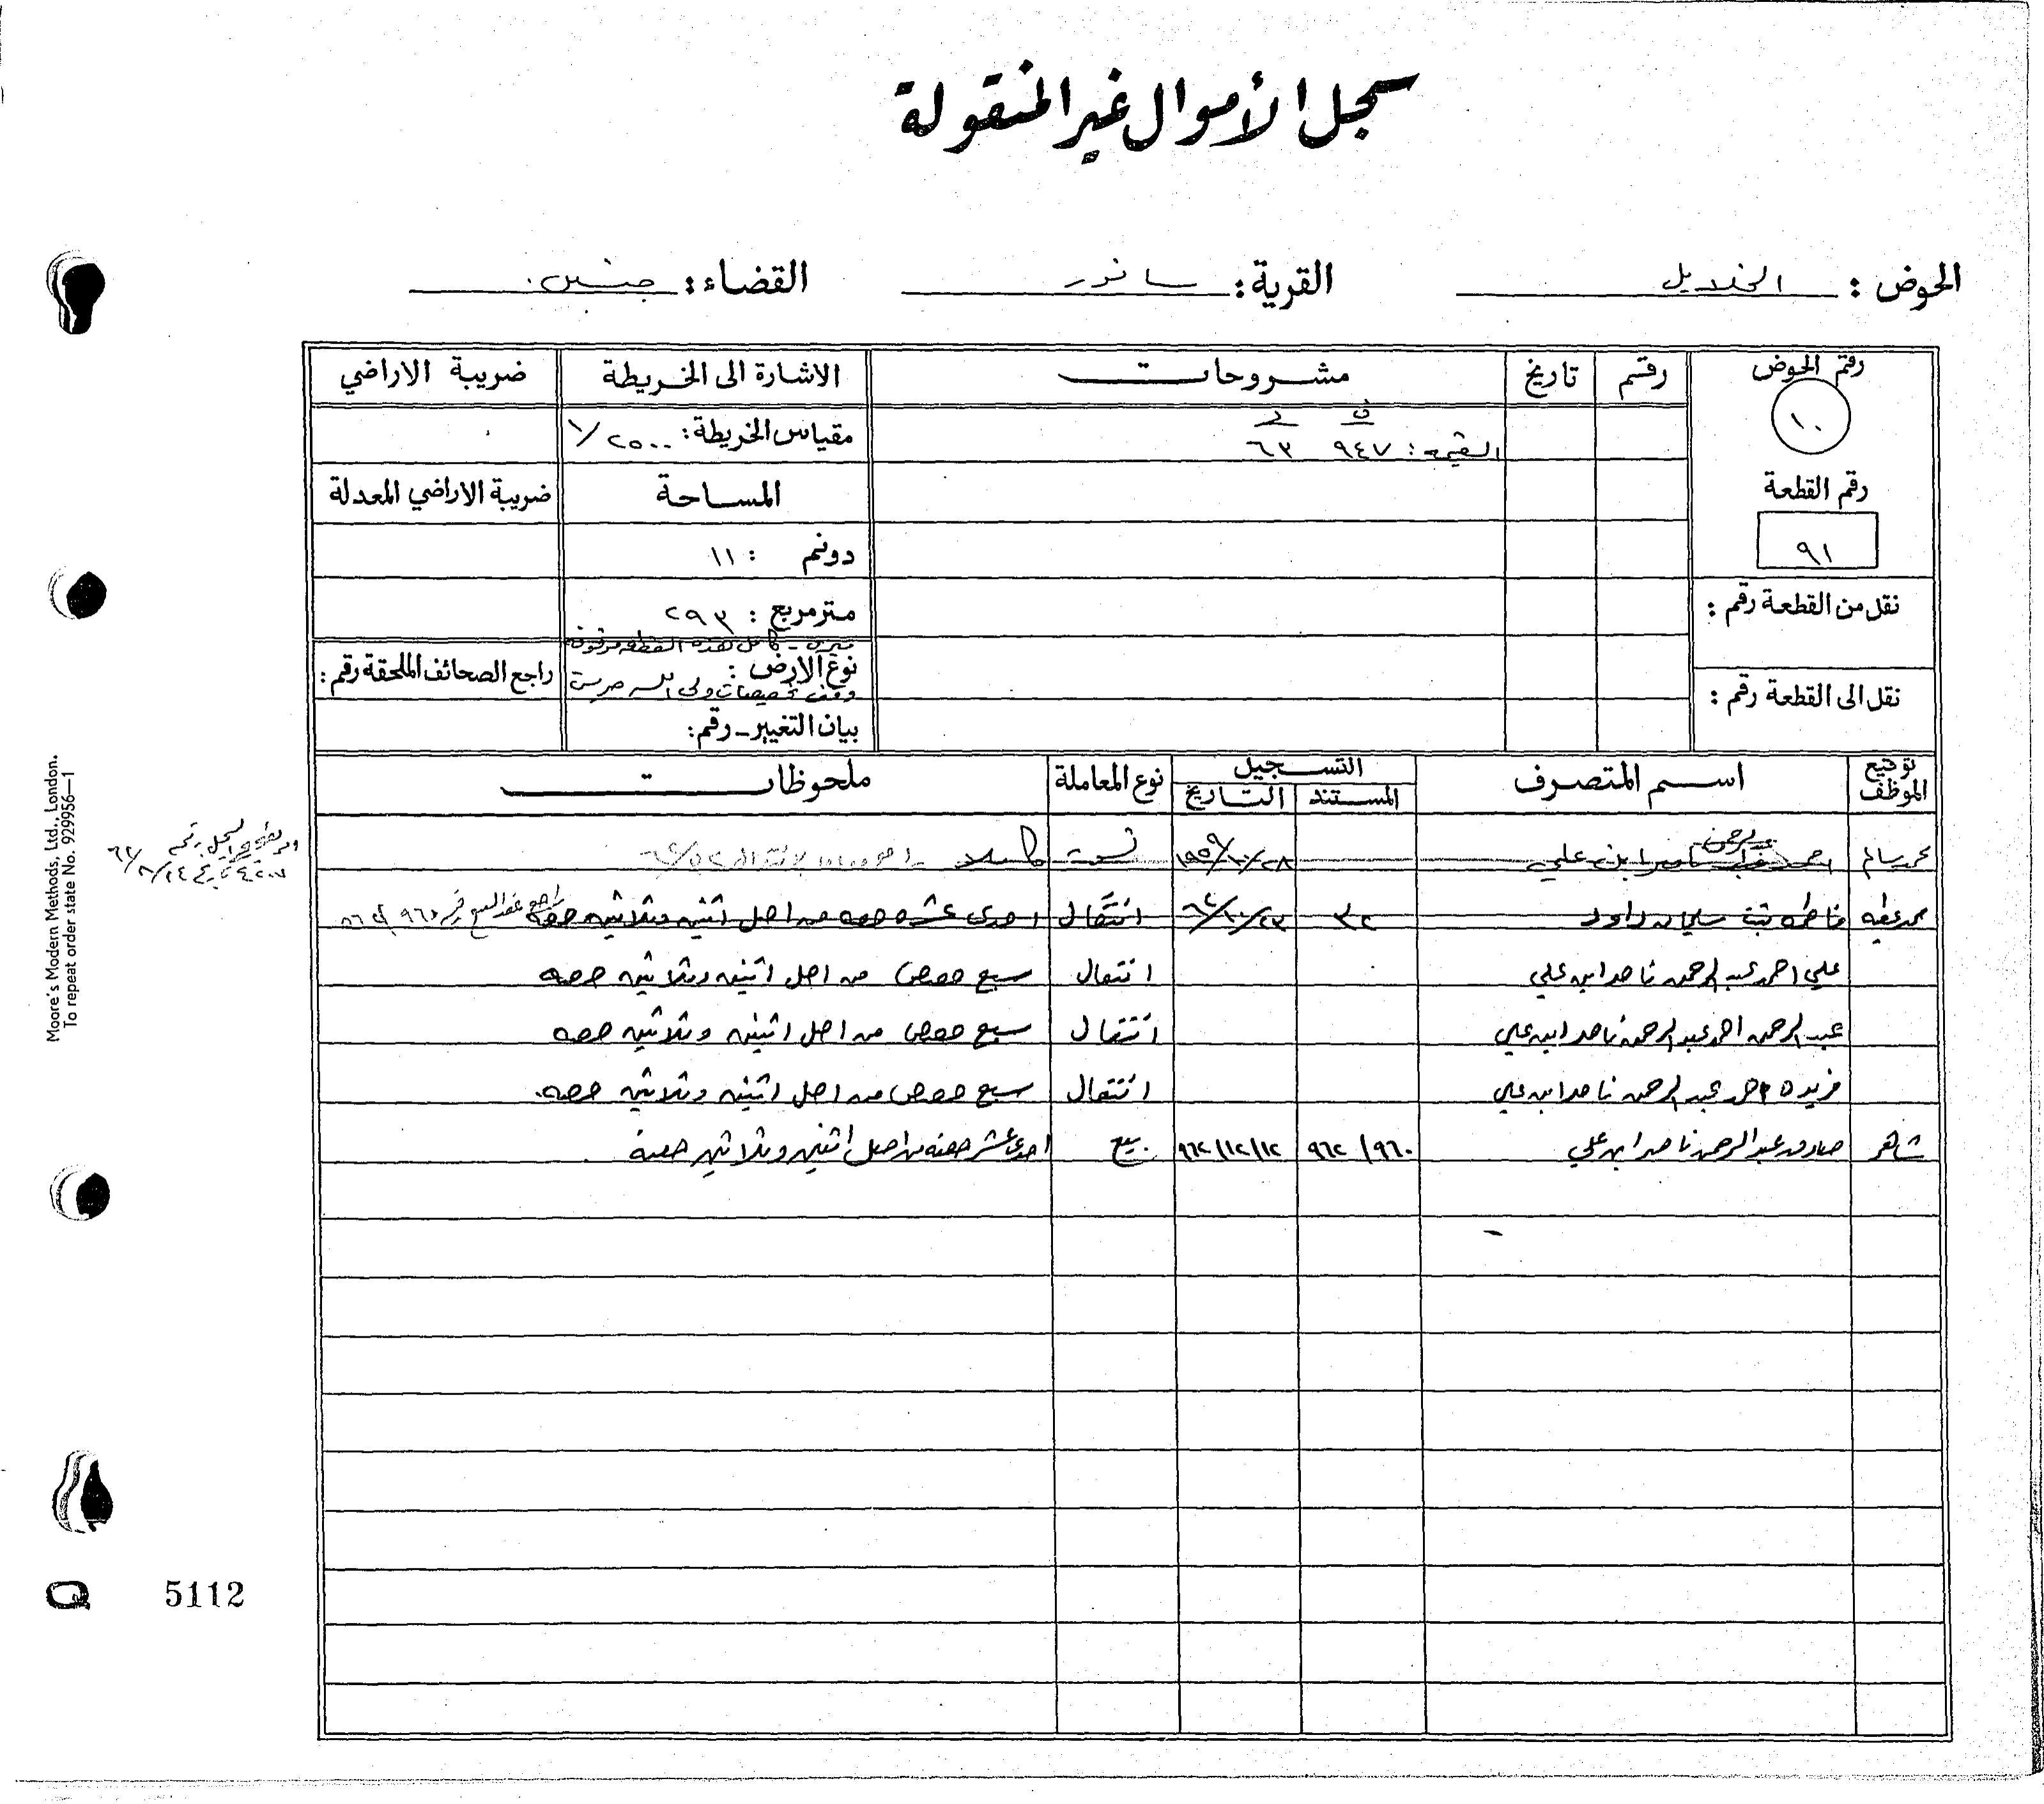 سجل الأموال غير المنقولة
الحوض : الخلايل القرية : سانور القضاء : جنين
رقم الحوض رقم تاريخ مشروحات الاشارة الى الخريطة ضريبة الاراضي
١٠
ف د
القيمة : ٩٤٧ ٦٣
مقياس الخريطة : ١/٢٥٠٠
رقم القطعة
المساحة ضريبة الاراضي المعدلة
٩١
دونم : ١١
نقل من القطعة رقم :
متر مربع : ٢٩٣
ميري - كامل هذه القطعة موقوفة
نوع الارض : راجع الصحائف الملحقة رقم :
وقف تخصيصات
نقل الى القطعة رقم :
بيان التغيير - رقم :
توقيع الموظف اسم المتصرف التسجيل نوع المعاملة ملحوظات
المستند التاريخ
محمد سالم احمد ناصر ابن علي ٢٨/١٠/١٩٥٩ تسوية كاملا
فاطمه بنت سليمان داود ٣٢ ٢٣/١٠/٦٢ انتقال احدى عشره حصه من اصل اثنين وثلاثين حصه راجع عقد البيع رقم
علي احمد عبد الرحمن ناصر ابن علي انتقال سبع حصص من اصل اثنين وثلاثين حصه
عبد الرحمن احمد عبد الرحمن ناصر ابن علي انتقال سبع حصص من اصل اثنين وثلاثين حصه
فريده احمد عبد الرحمن ناصر ابن علي انتقال سبع حصص من اصل اثنين وثلاثين حصه
شاهر صادق عبد الرحمن ناصر ابن علي ٩٦٠/٩٦٢ ١٢/١٢/٩٦٢ بيع احدى عشر حصة من اصل اثنين وثلاثين حصة
Moore's Modern Methods, Ltd., London.
To repeat order state No. 929956—1
Q 5112